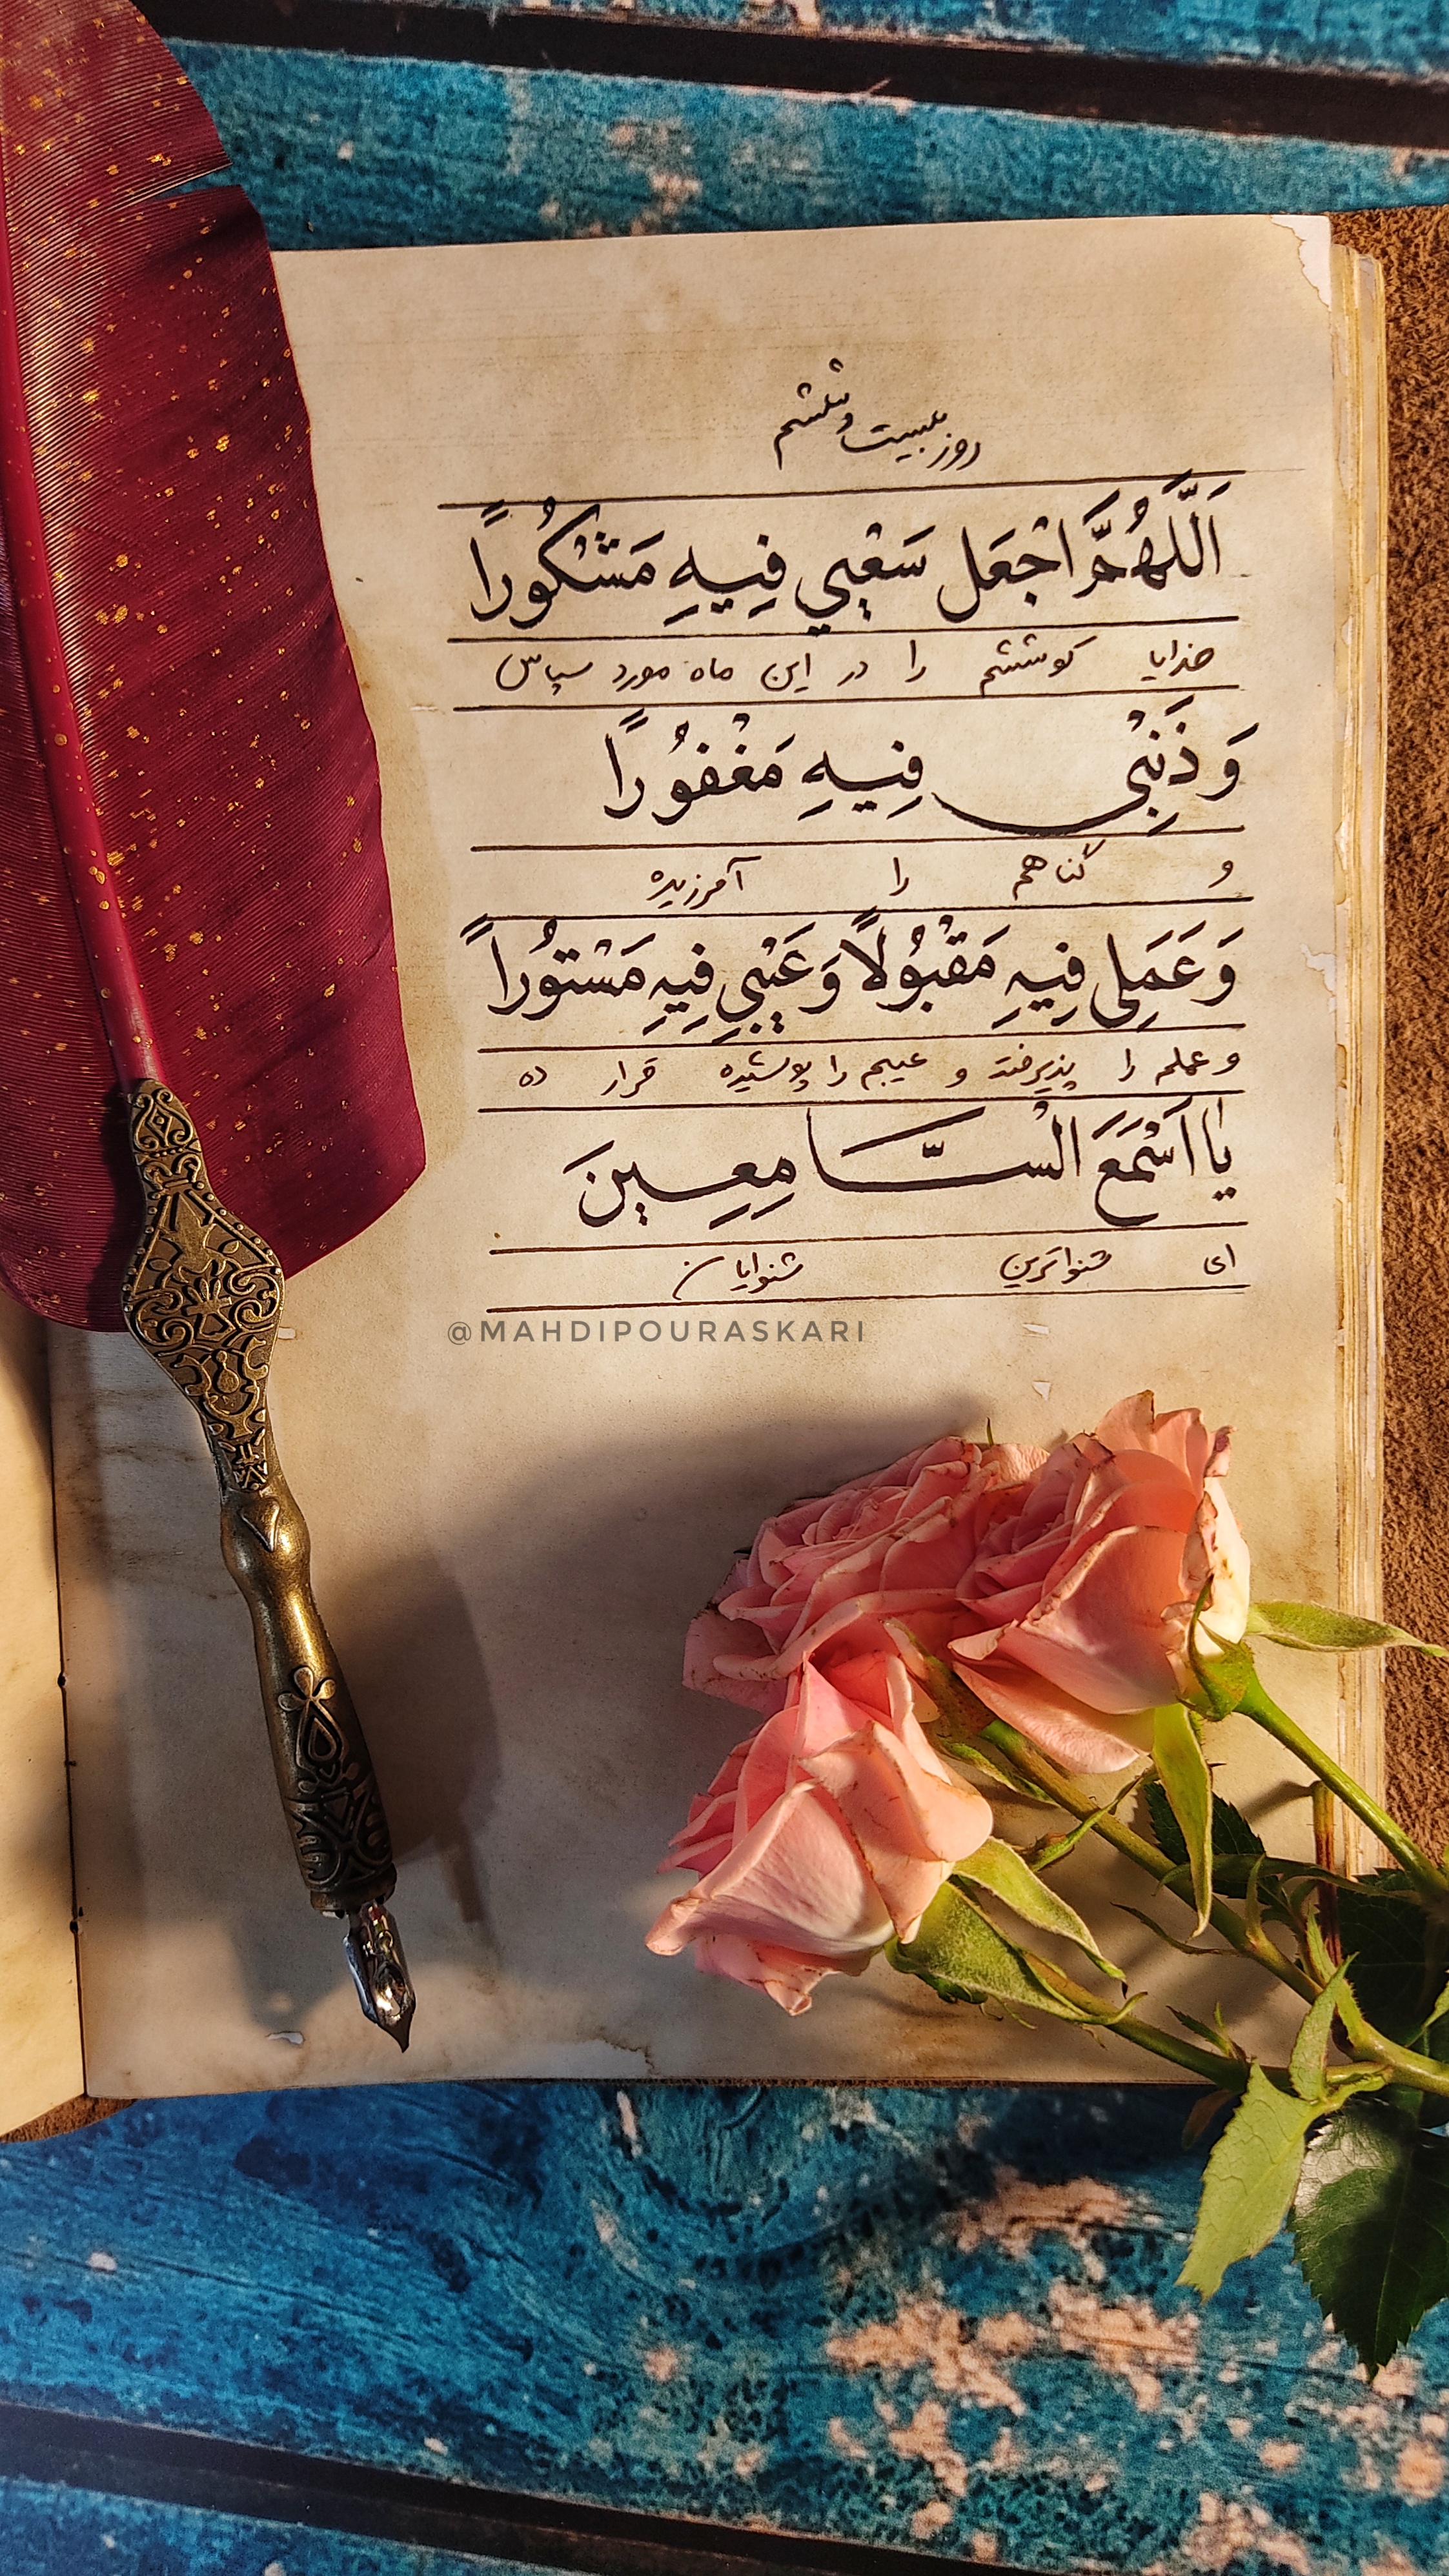 روز بیست و ششم
اَللّهُمَّ اجْعَل سَعْيي فِيهِ مَشْكُوراً
خدایا کوششم را در این ماه مورد سپاس
وَ ذَنْبي فِيهِ مَغْفُوراً
و گناهم را آمرزیده
وَ عَمَلي فِيهِ مَقْبُولاً وَ عَيْبي فِيهِ مَسْتُوراً
و عملم را پذیرفته و عیبم را پوشیده قرار ده
يا اَسْمَعَ السَّامِعِينَ
ای شنواترین شنوایان
@MAHDIPOURASKARI